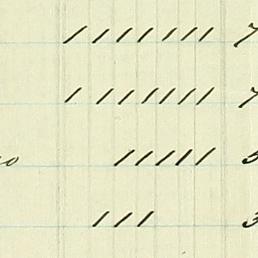 / / / / / / / 7
/ / / / / / / 7
o / / / / / 5
/ / / 3